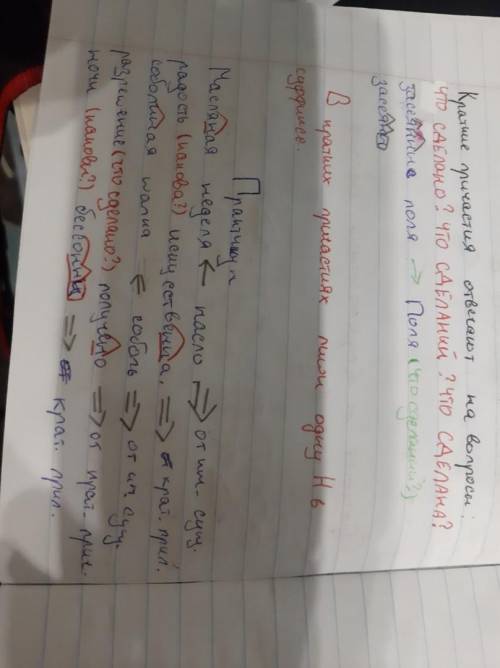 Краткие причастия отвечают на вопросы:
ЧТО СДЕЛАНО? ЧТО СДЕЛАНИЙ? ЧТО СДЕЛАНА?
засеянна поля → Поля (что сделаний?)
засеяно
В кратких причастиях пиши одну Н в
суффиксе.
Практикум
Масляная неделя ← масло => от им. сущ.
радость (какова?) искуственна, => от крат. прил.
соболиная шапка ← соболь => от им. сущ.
разрешение (что сделано?) получено => от крат. прич.
ночи (каковы?) бессонны => от крат. прил.